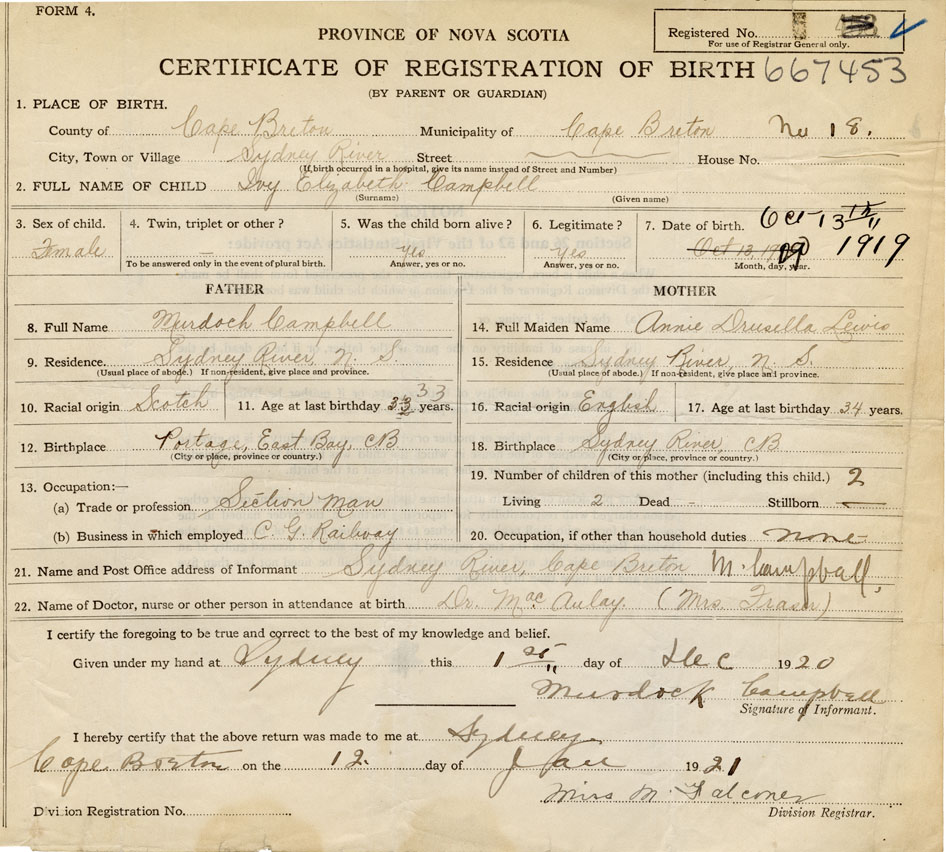 FORM 4.
Registered No.
For use of Registrar General only.
PROVINCE OF NOVA SCOTIA
CERTIFICATE OF REGISTRATION OF BIRTH 667453
(BY PARENT OR GUARDIAN)
1. PLACE OF BIRTH.
County of Cape Breton Municipality of Cape Breton No 18.
City, Town or Village Sydney River Street House No.
(If birth occurred in a hospital, give its name instead of Street and Number)
2. FULL NAME OF CHILD Ivy Elizabeth Campbell
(Surname) (Given name)
3. Sex of child. 4. Twin, triplet or other? 5. Was the child born alive? 6. Legitimate? 7. Date of birth. Oct 13th
Female — yes yes Oct 13, 19 1919
To be answered only in the event of plural birth. Answer, yes or no. Answer, yes or no. Month, day, year.
FATHER MOTHER
8. Full Name Murdoch Campbell
9. Residence. Sydney River, N. S.
(Usual place of abode.) If non-resident, give place and province.
10. Racial origin Scotch 11. Age at last birthday 33 33 years.
12. Birthplace Portage, East Bay, CB
(City or place, province or country.)
13. Occupation:—
(a) Trade or profession Section Man
(b) Business in which employed C. G. Railway
14. Full Maiden Name Annie Drusella Lewis
15. Residence Sydney River, N. S.
(Usual place of abode.) If non-resident, give place and province.
16. Racial origin English 17. Age at last birthday 34 years.
18. Birthplace Sydney River, CB
(City or place, province or country.)
19. Number of children of this mother (including this child.) 2
Living 2 Dead - Stillborn —
20. Occupation, if other than household duties none
21. Name and Post Office address of Informant Sydney River, Cape Breton M. Campball.
22. Name of Doctor, nurse or other person in attendance at birth Dr. Mac Aulay. (Mrs. Fraser)
I certify the foregoing to be true and correct to the best of my knowledge and belief.
Given under my hand at Sydney this 1 day of Dec 1920
Murdock Campbell
Signature of Informant.
I hereby certify that the above return was made to me at Sydney
Cape Breton on the 12 day of Jan 1921
Mrs M. Falconer
Division Registration No. Division Registrar.